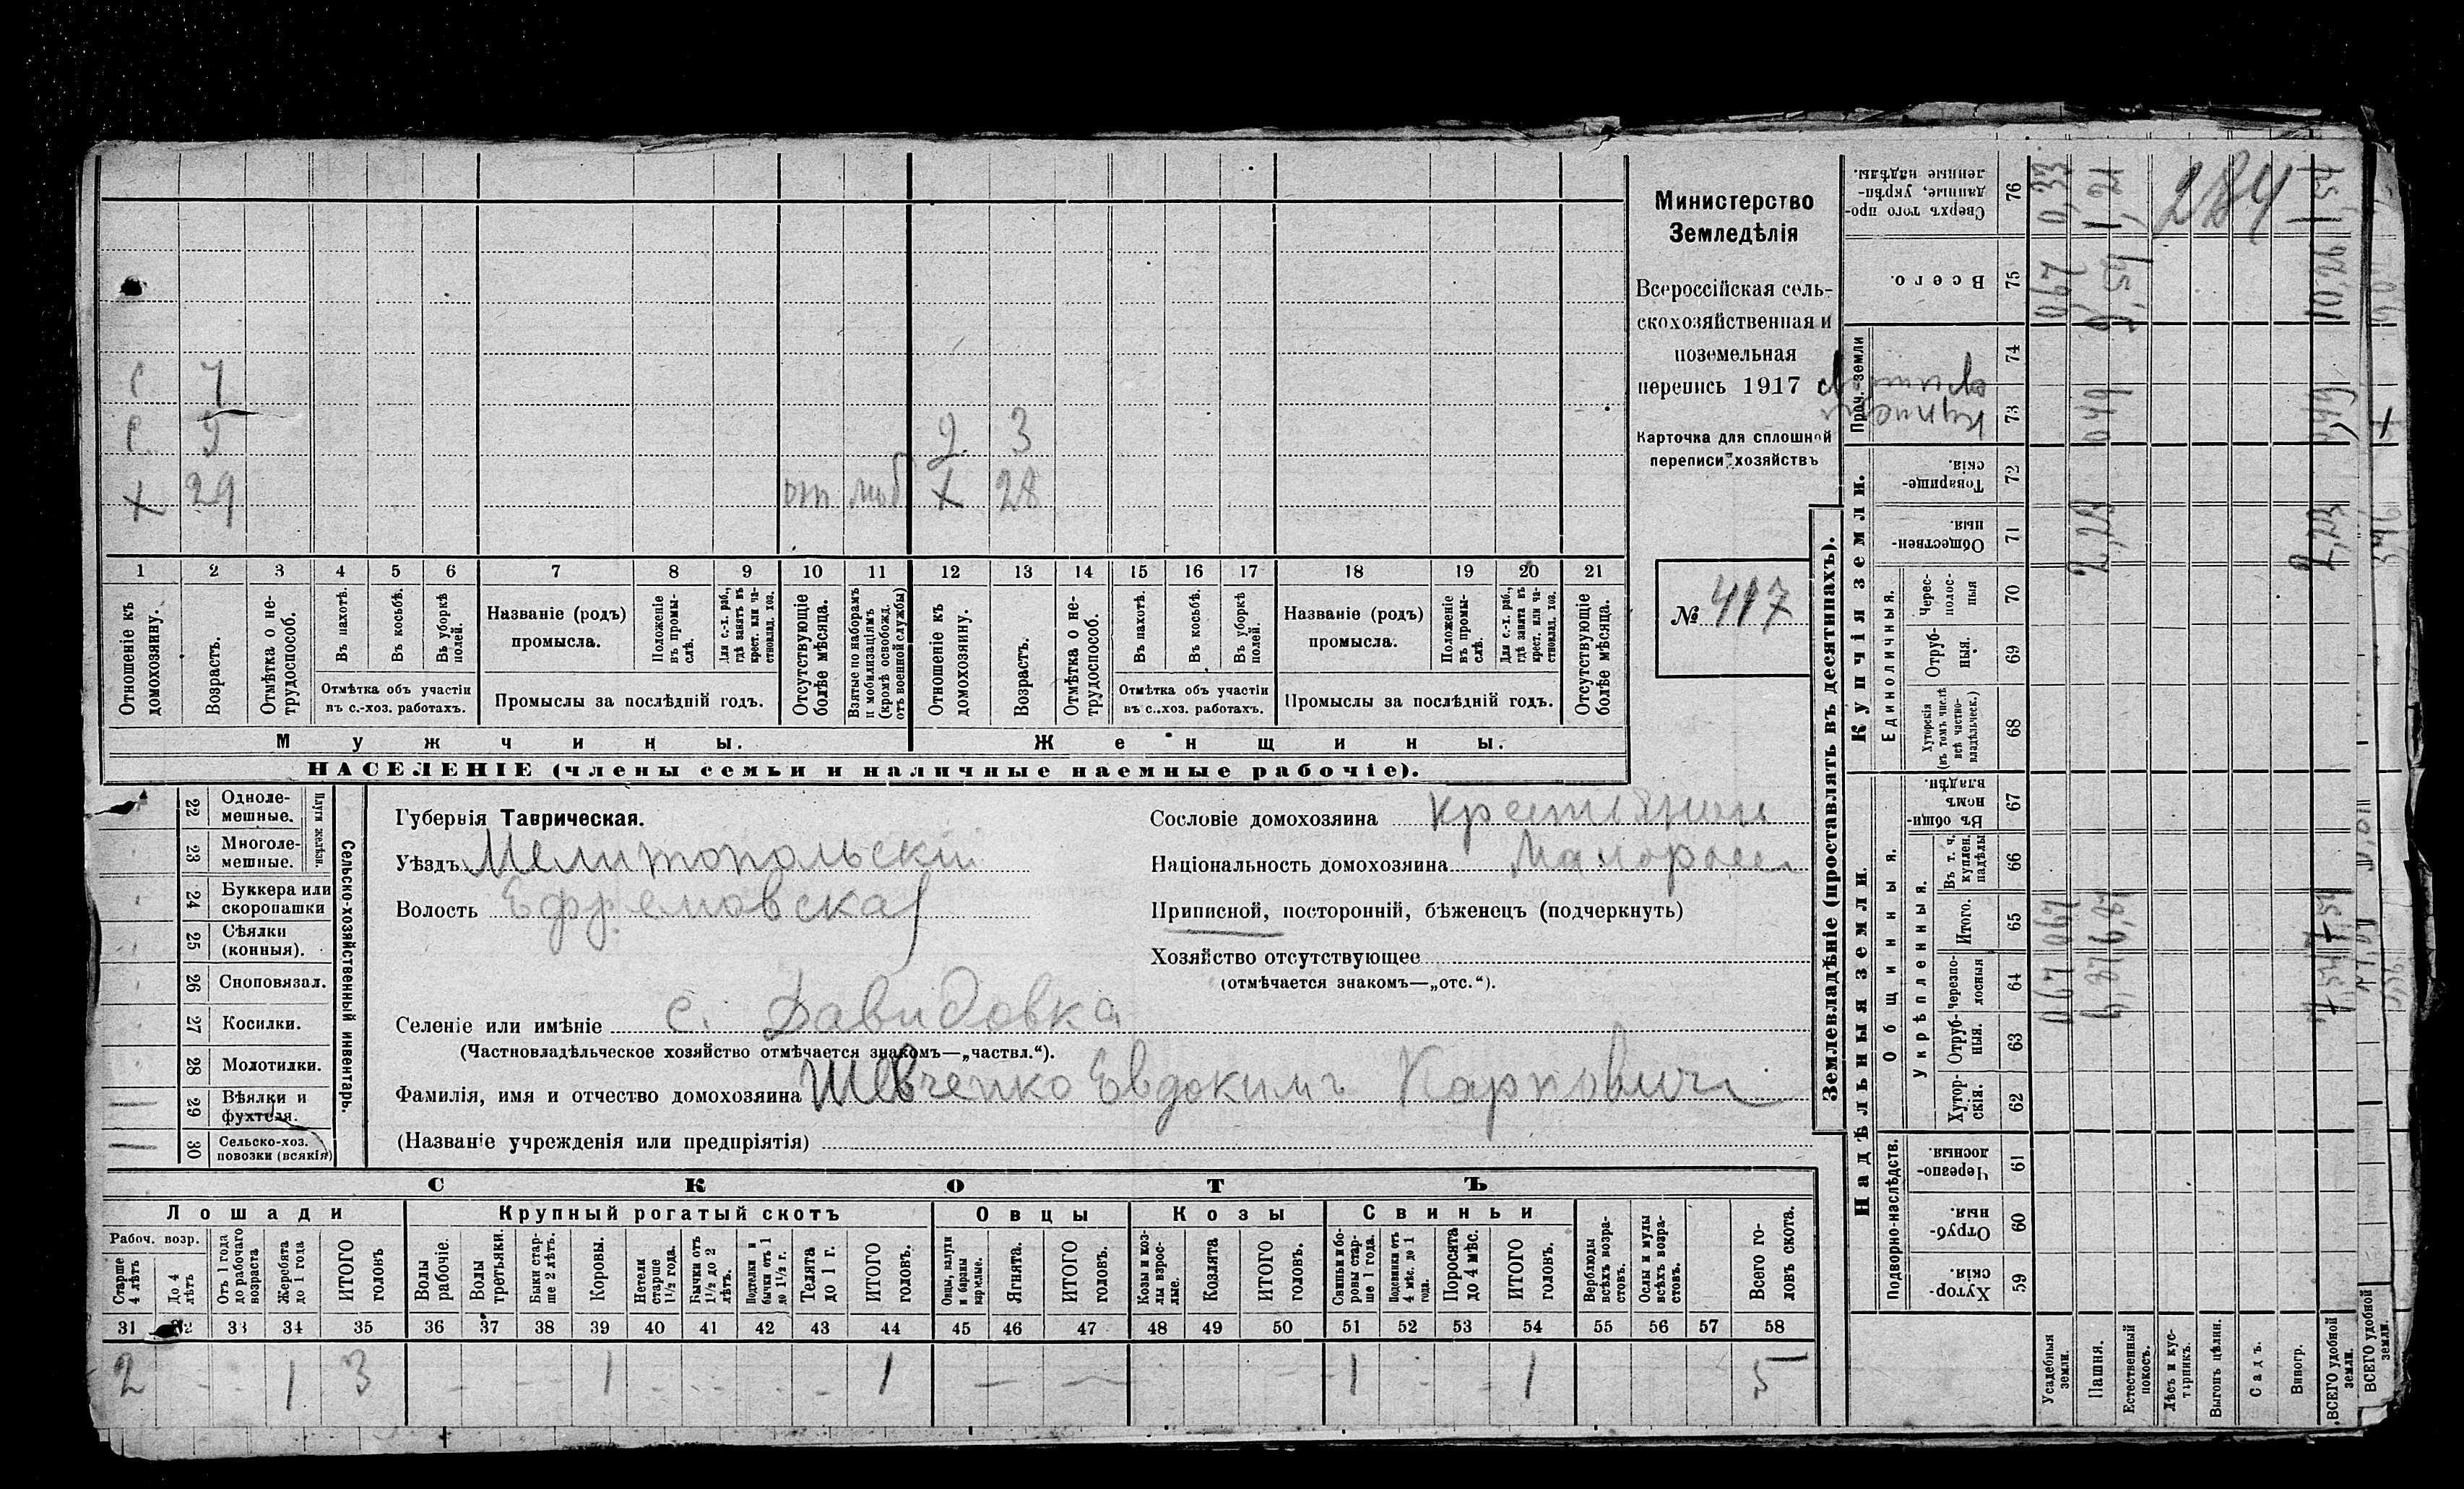 Министерство
Земледѣлія
Всероссійская сель-
скохозяйственная и
поземельная
перепись 1917
Карточка для сплошной
переписи хозяйствъ
№ 417
с 7
с. 9 2 3
х 29 от. моб х 28
1 2 3 4 5 6 7 8 9 10 11 12 13 14 15 16 17 18 19 20 21
Отношеніе къ домохозяину.
Возрастъ.
Отмѣтка о не-трудоспособ.
Въ пахотѣ.
Въ косьбѣ.
Въ уборкѣ полей.
Отмѣтка объ участіи въ с.-хоз. работахъ.
Названіе (родъ) промысла.
Положеніе въ промы-слѣ.
Для с.-х. раб., гдѣ занятъ въ крест. или ча-стновлад. хоз.
Промыслы за послѣдній годъ.
Отсутствующіе болѣе мѣсяца.
Взятые по наборамъ и мобилизаціямъ (кромѣ освобожд. отъ военной службы)
Отношеніе къ домохозяину.
Возрастъ.
Отмѣтка о не-трудоспособ.
Въ пахотѣ.
Въ косьбѣ.
Въ уборкѣ полей.
Отмѣтка объ участіи въ с.-хоз. работахъ.
Названіе (родъ) промысла.
Положеніе въ промы-слѣ.
Для с.-х. раб., гдѣ занятъ въ крест. или ча-стновлад. хоз.
Промыслы за послѣдній годъ.
Отсутствующіе болѣе мѣсяца.
Мужчины. Женщины.
НАСЕЛЕНІЕ (члены семьи и наличные наемные рабочіе).
Сельско-хозяйственный инвентарь.
Плуги желѣзн.
22 Одноле-мешные.
23 Многоле-мешные.
24 Буккера или скоропашки
25 Сѣялки (конныя).
26 Сноповязал.
27 Косилки.
28 Молотилки.
29 Вѣялки и фухтеля.
30 Сельско-хоз. повозки (всякія)
Губернія Таврическая.
Уѣздъ Мелитопольскій
Волость Ефремовская
Селеніе или имѣніе с. Давидовка
(Частновладѣльческое хозяйство отмѣчается знакомъ—„частвл.“).
Фамилія, имя и отчество домохозяина Шевченко Евдокимъ Карповичъ
(Названіе учрежденія или предпріятія)
Сословіе домохозяина крестьянин
Національность домохозяина Малоросс
Приписной, посторонній, бѣженецъ (подчеркнуть)
Хозяйство отсутствующее
(отмѣчается знакомъ—„отс.“).
СКОТЪ
Лошади Крупный рогатый скотъ Овцы Козы Свиньи
Рабоч. возр.
Старше 4 лѣтъ
До 4 лѣтъ
Отъ 1 года до рабочаго возраста
Жеребята до 1 года
ИТОГО головъ
Волы рабочіе.
Волы третьяки.
Быки стар-ше 2 лѣтъ.
Коровы.
Нетели старше 1½ года.
Бычки отъ 1½ до 2 лѣтъ.
Подтелки и бычки отъ 1 до 1½ г.
Телята до 1 г.
ИТОГО головъ.
Овцы, валухи и бараны взрослые.
Ягнята.
ИТОГО головъ.
Козы и коз-лы взрос-лые.
Козлята
ИТОГО головъ.
Свиньи и бо-ровы стар-ше 1 года.
Подсвинки отъ 4 мѣс. до 1 года.
Поросята до 4 мѣс.
ИТОГО головъ.
Верблюды всѣхъ возра-стовъ.
Ослы и мулы всѣхъ возра-стовъ.
Всего го-ловъ скота.
31 32 33 34 35 36 37 38 39 40 41 42 43 44 45 46 47 48 49 50 51 52 53 54 55 56 57 58
2 - - 1 3 - - - 1 - - - - 1 — — - 1 - - 1 5
Землевладѣніе (проставлять въ десятинахъ).
Надѣльныя земли. Купчія земли. Проч. земли
Подворно-наслѣдств.
Общинныя.
Укрѣпленныя.
Единоличныя.
Сверхъ того про-данные, укрѣп-ленные надѣлы. 76
Всего. 75
74
73
Товарище-скія. 72
Обществен-ныя. 71
Черес-полос-ныя 70
Отруб-ныя. 69
Хуторскія (въ томъ числѣ всѣ частно-владѣльческ.) 68
Въ общин-номъ владѣн. 67
Въ т. ч. куплен. надѣлы 66
Итого. 65
Черезпо-лосныя 64
Отруб-ныя. 63
Хутор-скія. 62
Черезпо-лосныя. 61
Отруб-ныя. 60
Хутор-скія. 59
Усадебныя земли. 067 067 067 0,33
Пашня. 6,87 6,87 2,23 049 1,21
Естественный покосъ.
Лѣсъ и кус-тарникъ.
Выгонъ цѣлин.
Садъ.
Виногр.
ВСЕГО удобной земли. 7,54 7,54 2,23 10,26 1,54
ВСЕГО удобной земли.
284